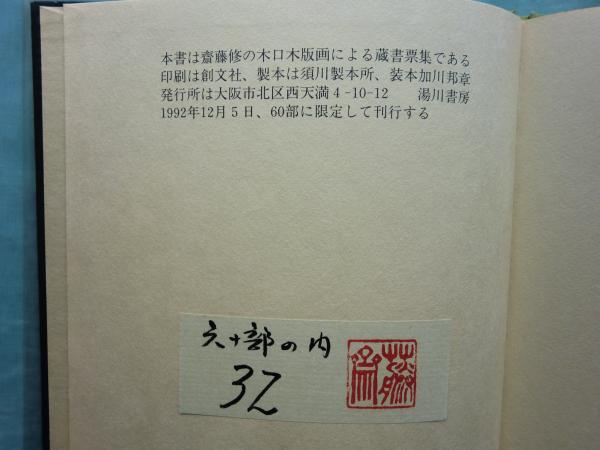 本書は齋藤修の木口木版画による蔵書票集である
印刷は創文社、製本は須川製本所、装本加川邦章
発行所は大阪市北区西天満4-10-12　湯川書房
1992年12月5日、60部に限定して刊行する
六十部の内
32